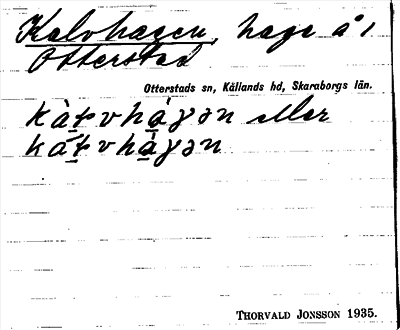 Kalvhagen, hage å 1
Otterstad
Otterstads sn, Kållands hd, Skaraborgs län.
kàɫvhà̱gən eller
káɫvhà̱gən
THORVALD JONSSON 1935.